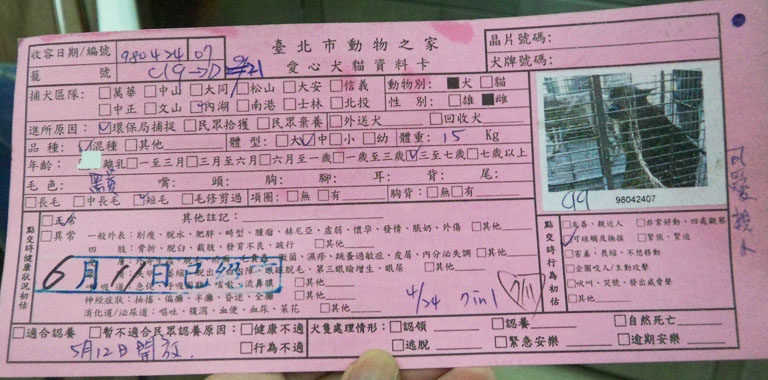 收容日期/編號 980424 07
臺北市動物之家
愛心犬貓資料卡
晶片號碼:
犬牌號碼:
籠 號
捕犬區隊: □萬華 □中山 □大同 □松山 □大安 □信義
□中正 □文山 ☑內湖 □南港 □士林 □北投
動物別: ■犬 □貓
性 別: □雄 ■雌
進所原因: ☑環保局捕捉 □民眾拾獲 □民眾棄養 □外送犬 □回收犬
品 種: ☑混種 □其他 體 型: □大 ☑中 □小 □幼 體重: 15 Kg
年齡: 離乳 □一至三月 □三月至六月 □六月至一歲 □一歲至三歲 ☑三至七歲 □七歲以上
毛 色: 嘴: 頭: 胸: 腳: 耳: 背: 尾:
□長毛 □中長毛 ☑短毛 □毛修剪過 項圈: □無 □有 胸背: □無 □有
98042407
可愛 親人
點交時健康狀況初估
☑正常 其他註記:
□異常 一般外表: 削瘦、脫水、肥胖、畸型、腫瘤、赫尼亞、虐傷、懷孕、發情、脹奶、外傷 □其他
四 肢: 骨折、脫臼、截肢、發育不良、跛行 □其他
黴菌、濕疹、跳蚤過敏症、皮屑、內分泌失調 □其他
眼瞼脫毛、第三眼瞼增生、眼屎 □其他
6月11日已絕育
流鼻膿 □其他
神經症狀: 抽搐、偏癱、半癱、昏迷、全癱 □其他
消化道/泌尿道: 嘔吐、腹瀉、血便、血尿、菜花 □其他
4/24 7in1
點交時行為初估
□友善、親近人 □非常好動、四處觀察
☑可碰觸及撫摸 □緊張、緊迫
□害羞、畏縮、不想移動
□企圖咬人/主動攻擊
□吠叫、哭號、發出威脅聲
□其他
□適合認養 □暫不適合民眾認養原因: □健康不適
□行為不適
5月12日開放
犬隻處理情形: □認領 □認養 □自然死亡
□逃脫 □緊急安樂 □逾期安樂